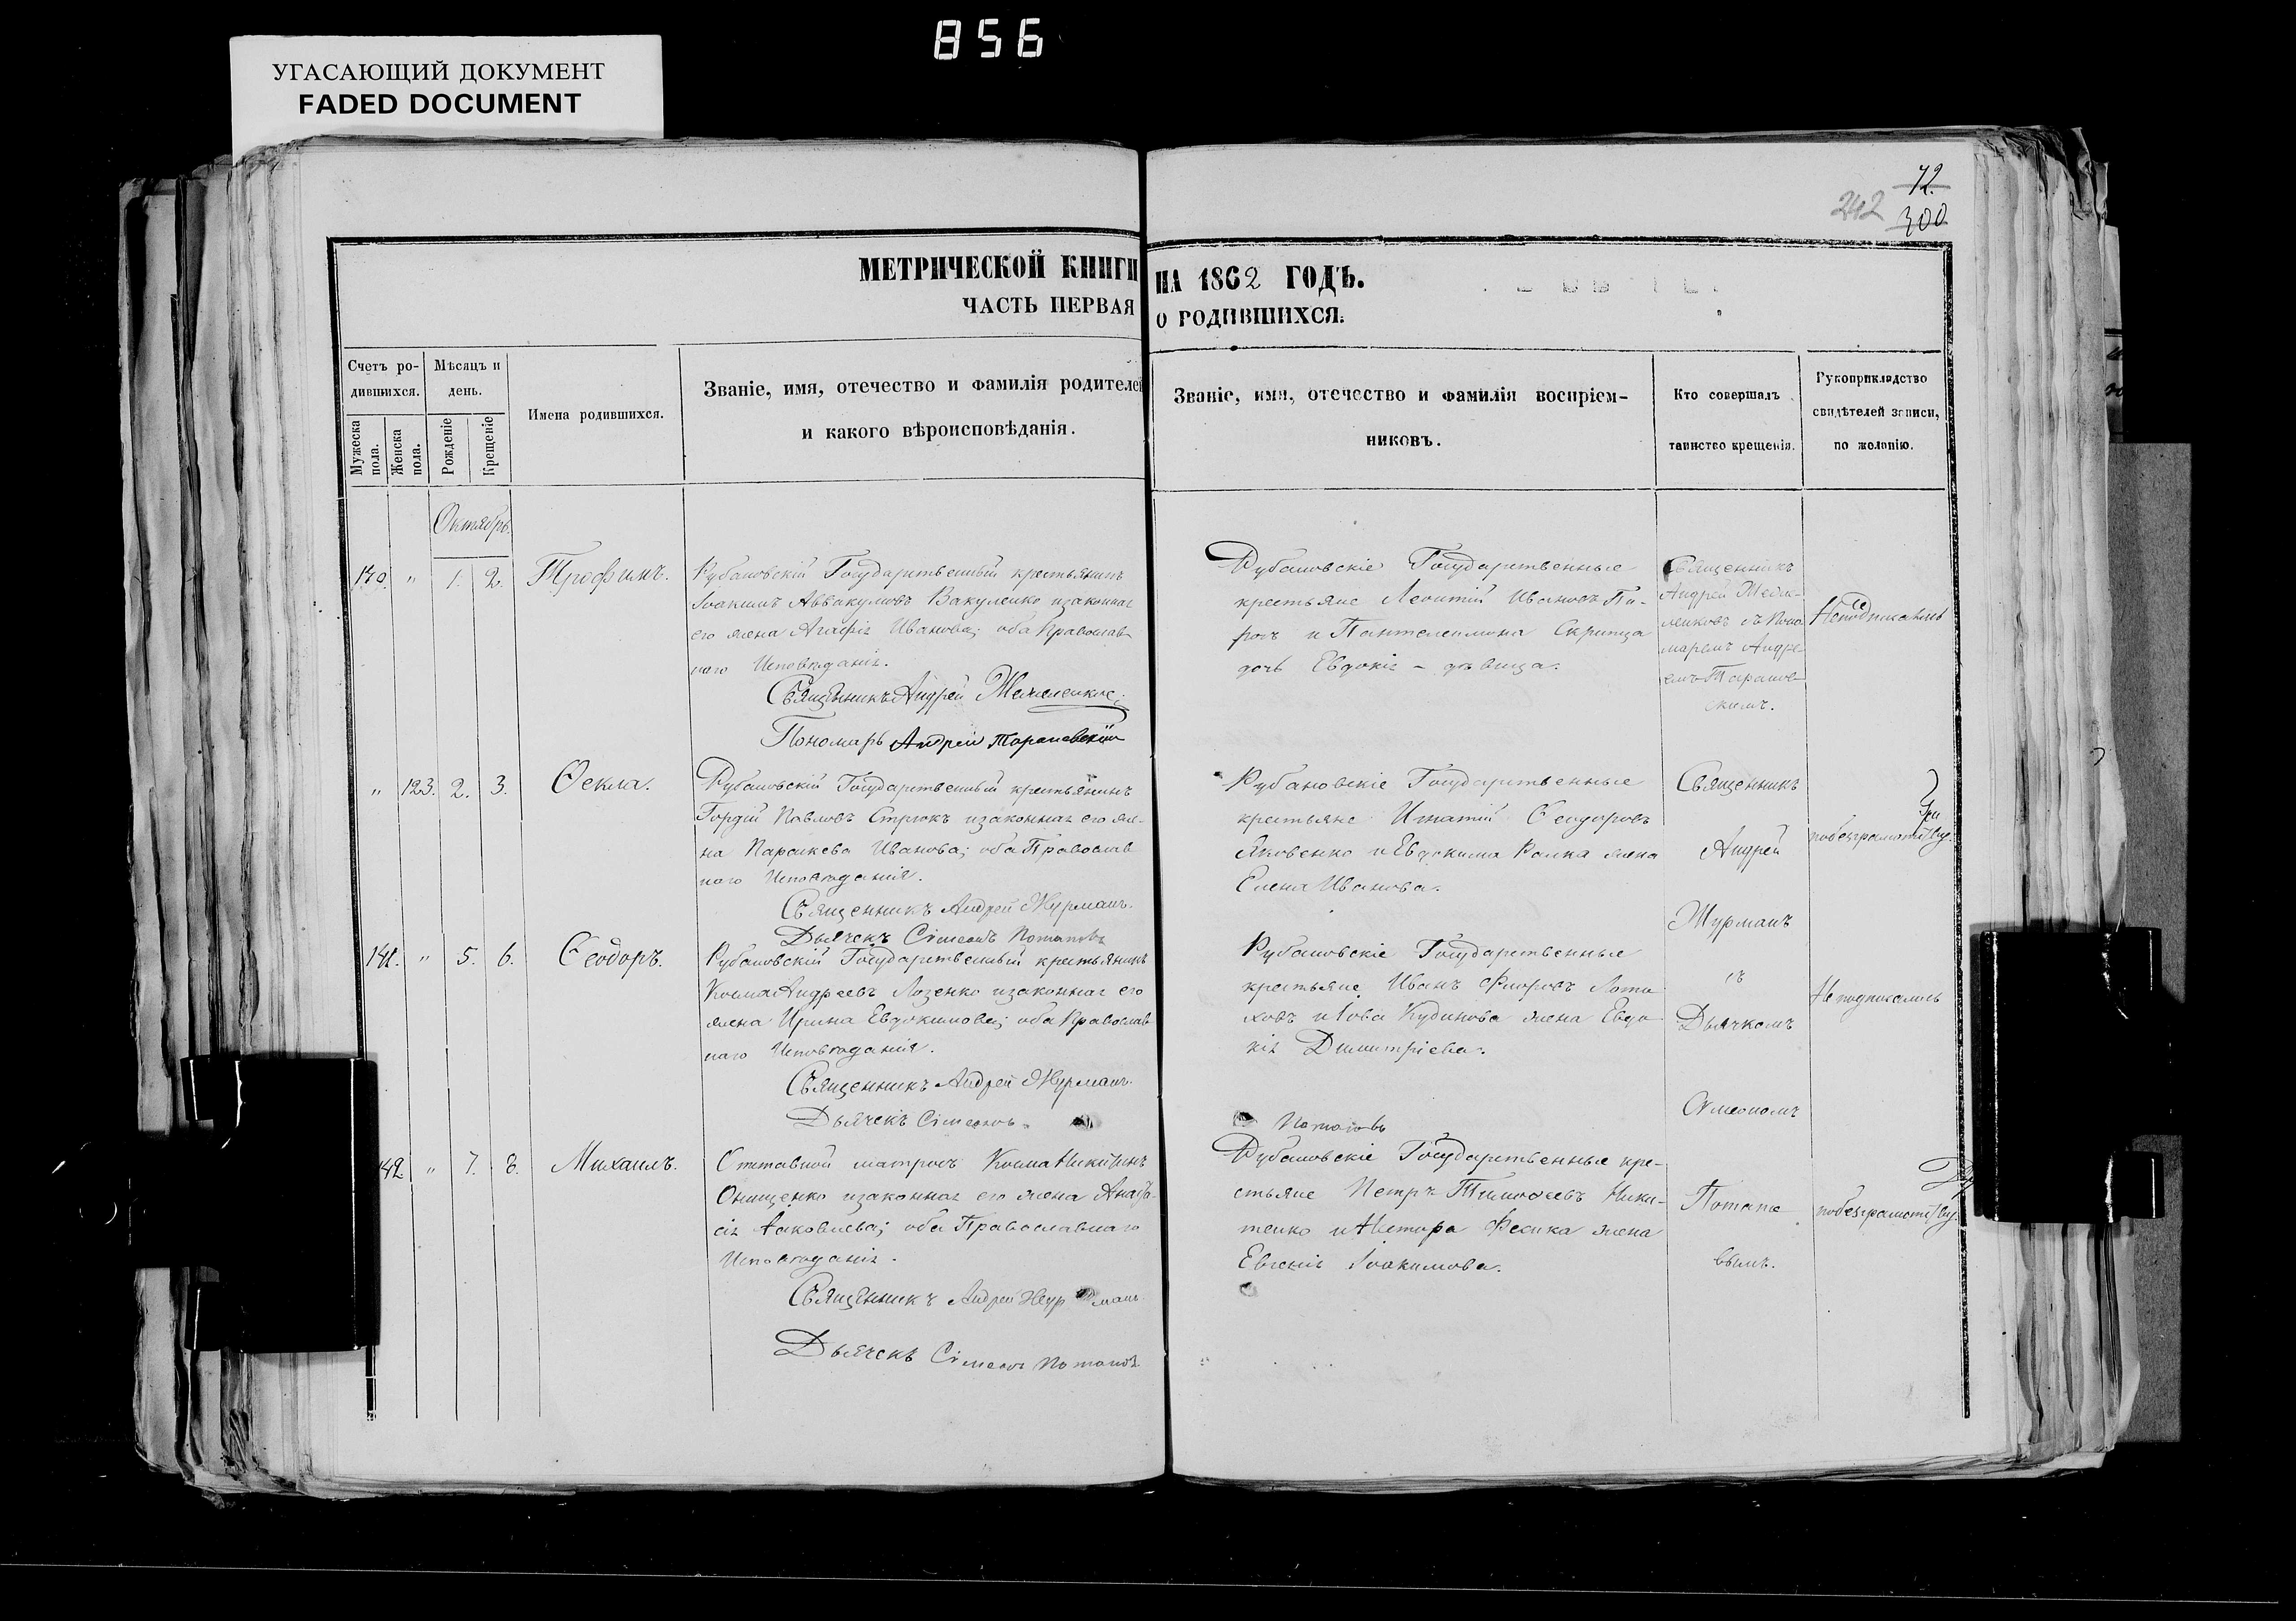 856
УГАСАЮЩИЙ ДОКУМЕНТ
FADED DOCUMENT
72.
242 300
МЕТРИЧЕСКОЙ КНИГИ НА 1862 ГОДЪ.
ЧАСТЬ ПЕРВАЯ О РОДИВШИХСЯ.
Счетъ ро-
дившихся.
Мужеска пола.
Женска пола.
Мѣсяцъ и
день.
Рожденіе
Крещеніе
Имена родившихся.
Званіе, имя, отечество и фамилія родителей
и какого вѣроисповѣданія.
Званіе, имя, отечество и фамилія воспріем-
никовъ.
Кто совершалъ
таинство крещенія.
Рукоприкладство
свидѣтелей записи,
по желанію.
Октябрь.
140. " 1. 2. Трофимъ.
Рубановскій Государственный крестьянинъ
Іоакимъ Аввакумовъ Вакуленко изаконная
его жена Агафія Иванова; оба Православ
наго Исповѣданія.
Священникъ Андрей
Пономарь Андрей Торановскій
Рубановскіе Государственные
крестьяне Леонтій Ивановъ Пи-
рогъ и Пантелеимона Скрипца
дочь Евдокія - дѣвица.
Священникъ
Андрей
съ Поно
маремъ Андре
емъ Таранов
скимъ.
" 123. 2. 3. Ѳекла.
Рубановскій Государственный крестьянинъ
Гордій Павловъ Стрюкъ изаконная его же-
на Параскева Иванова; оба Православ
наго Исповѣданія.
Священникъ Андрей Журманъ.
Дьячекъ Сімеонъ Потаповъ
Рубановскіе Государственные
крестьяне Игнатій Ѳеодоровъ
Яковенко и Евдокима Ралка жена
Елена Иванова.
Священникъ
Андрей
Журманъ
съ
Дьячкомъ
Сімеономъ
Потапо
вымъ.
побезграмотству.
141. " 5. 6. Ѳеодоръ.
Рубановскій Государственный крестьянинъ
Косма Андреевъ Лозенко изаконная его
жена Ирина Евдокимова; оба Православ
наго Исповѣданія.
Священникъ Андрей Журманъ.
Дьячекъ Сімеонъ Потаповъ
Рубановскіе Государственные
крестьяне Иванъ Флоровъ Лома
ховъ и Іова Кудинова жена Евдо
кія Димитріева.
Неподписались
142. " 7. 8. Михаилъ.
Отставной матросъ Косма Никитинъ
Онищенко изаконная его жена Анаста-
сія Іаковлева; оба Православнаго
Исповѣданія.
Священникъ Андрей Журманъ
Дьячекъ Сімеонъ Потаповъ
Рубановскіе Государственные кре-
стьяне Петръ Тимоѳеевъ Ники-
тенко и Нестора Фесика жена
Евгенія Іоакимова.
побезграмотству.